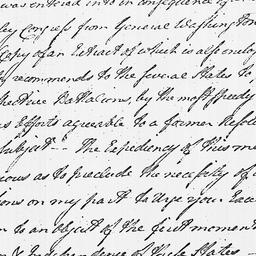 was entered into in consequence of
by Congress from General Washington
Copy of an Extract of which is also enclos
recommends to the several States to
spective Battalions, by the most speedy
Efforts agreeable to a former Resolu
Subject -- The Expediency of this me
ious as to preclude the necessity of a
ions on my part to urge your Exce
n to an object of the first moment
Independence of these States